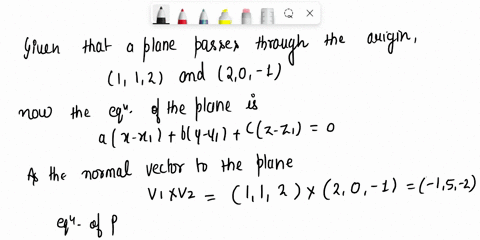 Given that a plane passes through the origin,
(1, 1, 2) and (2, 0, -1)
now the eqⁿ. of the plane is
a(x-x₁) + b(y-y₁) + c(z-z₁) = 0
As the normal vector to the plane
V₁ x V₂ = (1, 1, 2) x (2, 0, -1) = (-1, 5, -2)
eqⁿ. of P